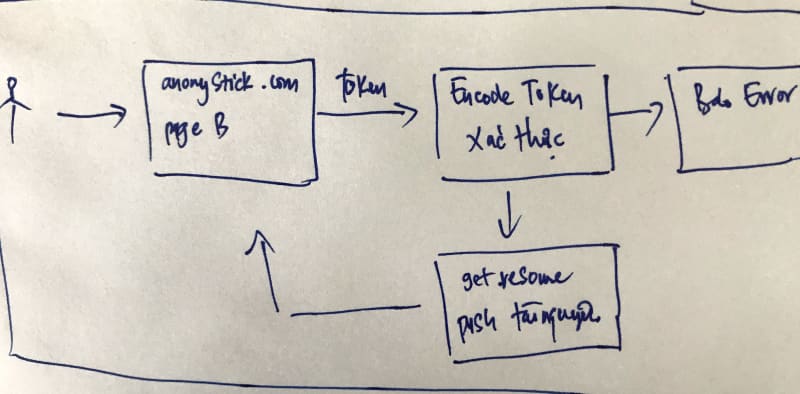 anonyStick.com
page B
Token
Encode Token
Xác thực
Báo Error
get resome
push tài nguyên